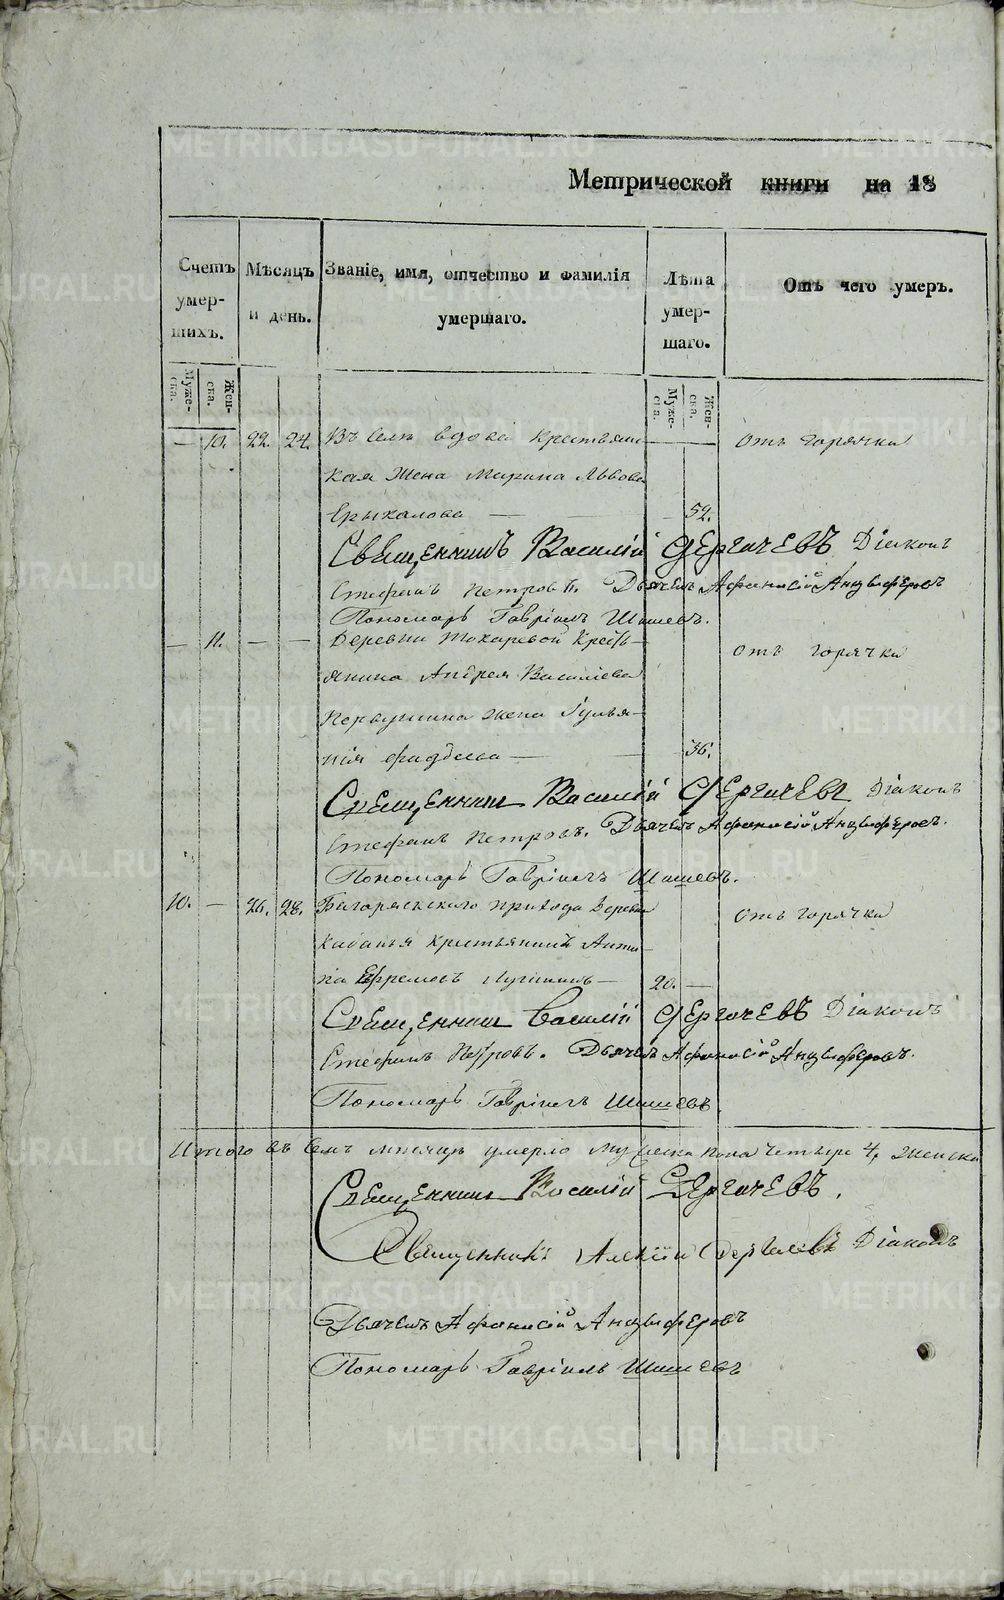 Метрической книги на 18
Счетъ умер-шихъ.
Мѣсяцъ и день.
Званіе, имя, отчество и фамилія умершаго.
Лѣта умер-шаго.
Отъ чего умеръ.
Муже-ска.
Жен-ска.
Муже-ска.
Жен-ска.
— 10. 22. 24. Въ селѣ вдова крестьянс- отъ горячки
кая жена Марина Львова
Ерыкалова — 52.
Священникъ Василій Дергачевъ Діаконъ
Стефанъ Петровъ. Дьячекъ Афонасій Анцыферовъ
Пономарь Гавріилъ Шишевъ.
— 11. — — Деревни Токаревой Крест- отъ горячки
янина Андрея Василіева
Первушина жена Гулья-
нія — 36.
Священникъ Василій Дергачевъ Діаконъ
Стефанъ Петровъ. Дьячекъ Афонасій Анцыферовъ.
Пономарь Гавріилъ Шишевъ.
10. — 26. 28. Багарякскаго прихода деревни отъ горячки
Кабанья крестьянинъ Анти-
па Ефремовъ — 20. —
Священникъ Василій Дергачевъ Діаконъ
Стефанъ Петровъ. Дьячекъ Афонасій Анцыферовъ.
Пономарь Гавріилъ Шишевъ.
Итого въ семъ мѣсяцѣ умерло мужеска пола четыре 4, женска
Священникъ Василій Дергачевъ.
Священникъ Алексій Дергачевъ Діаконъ
Дьячекъ Афонасій Анцыферовъ
Пономарь Гавріилъ Шишевъ
METRIKI.GASO-URAL.RU